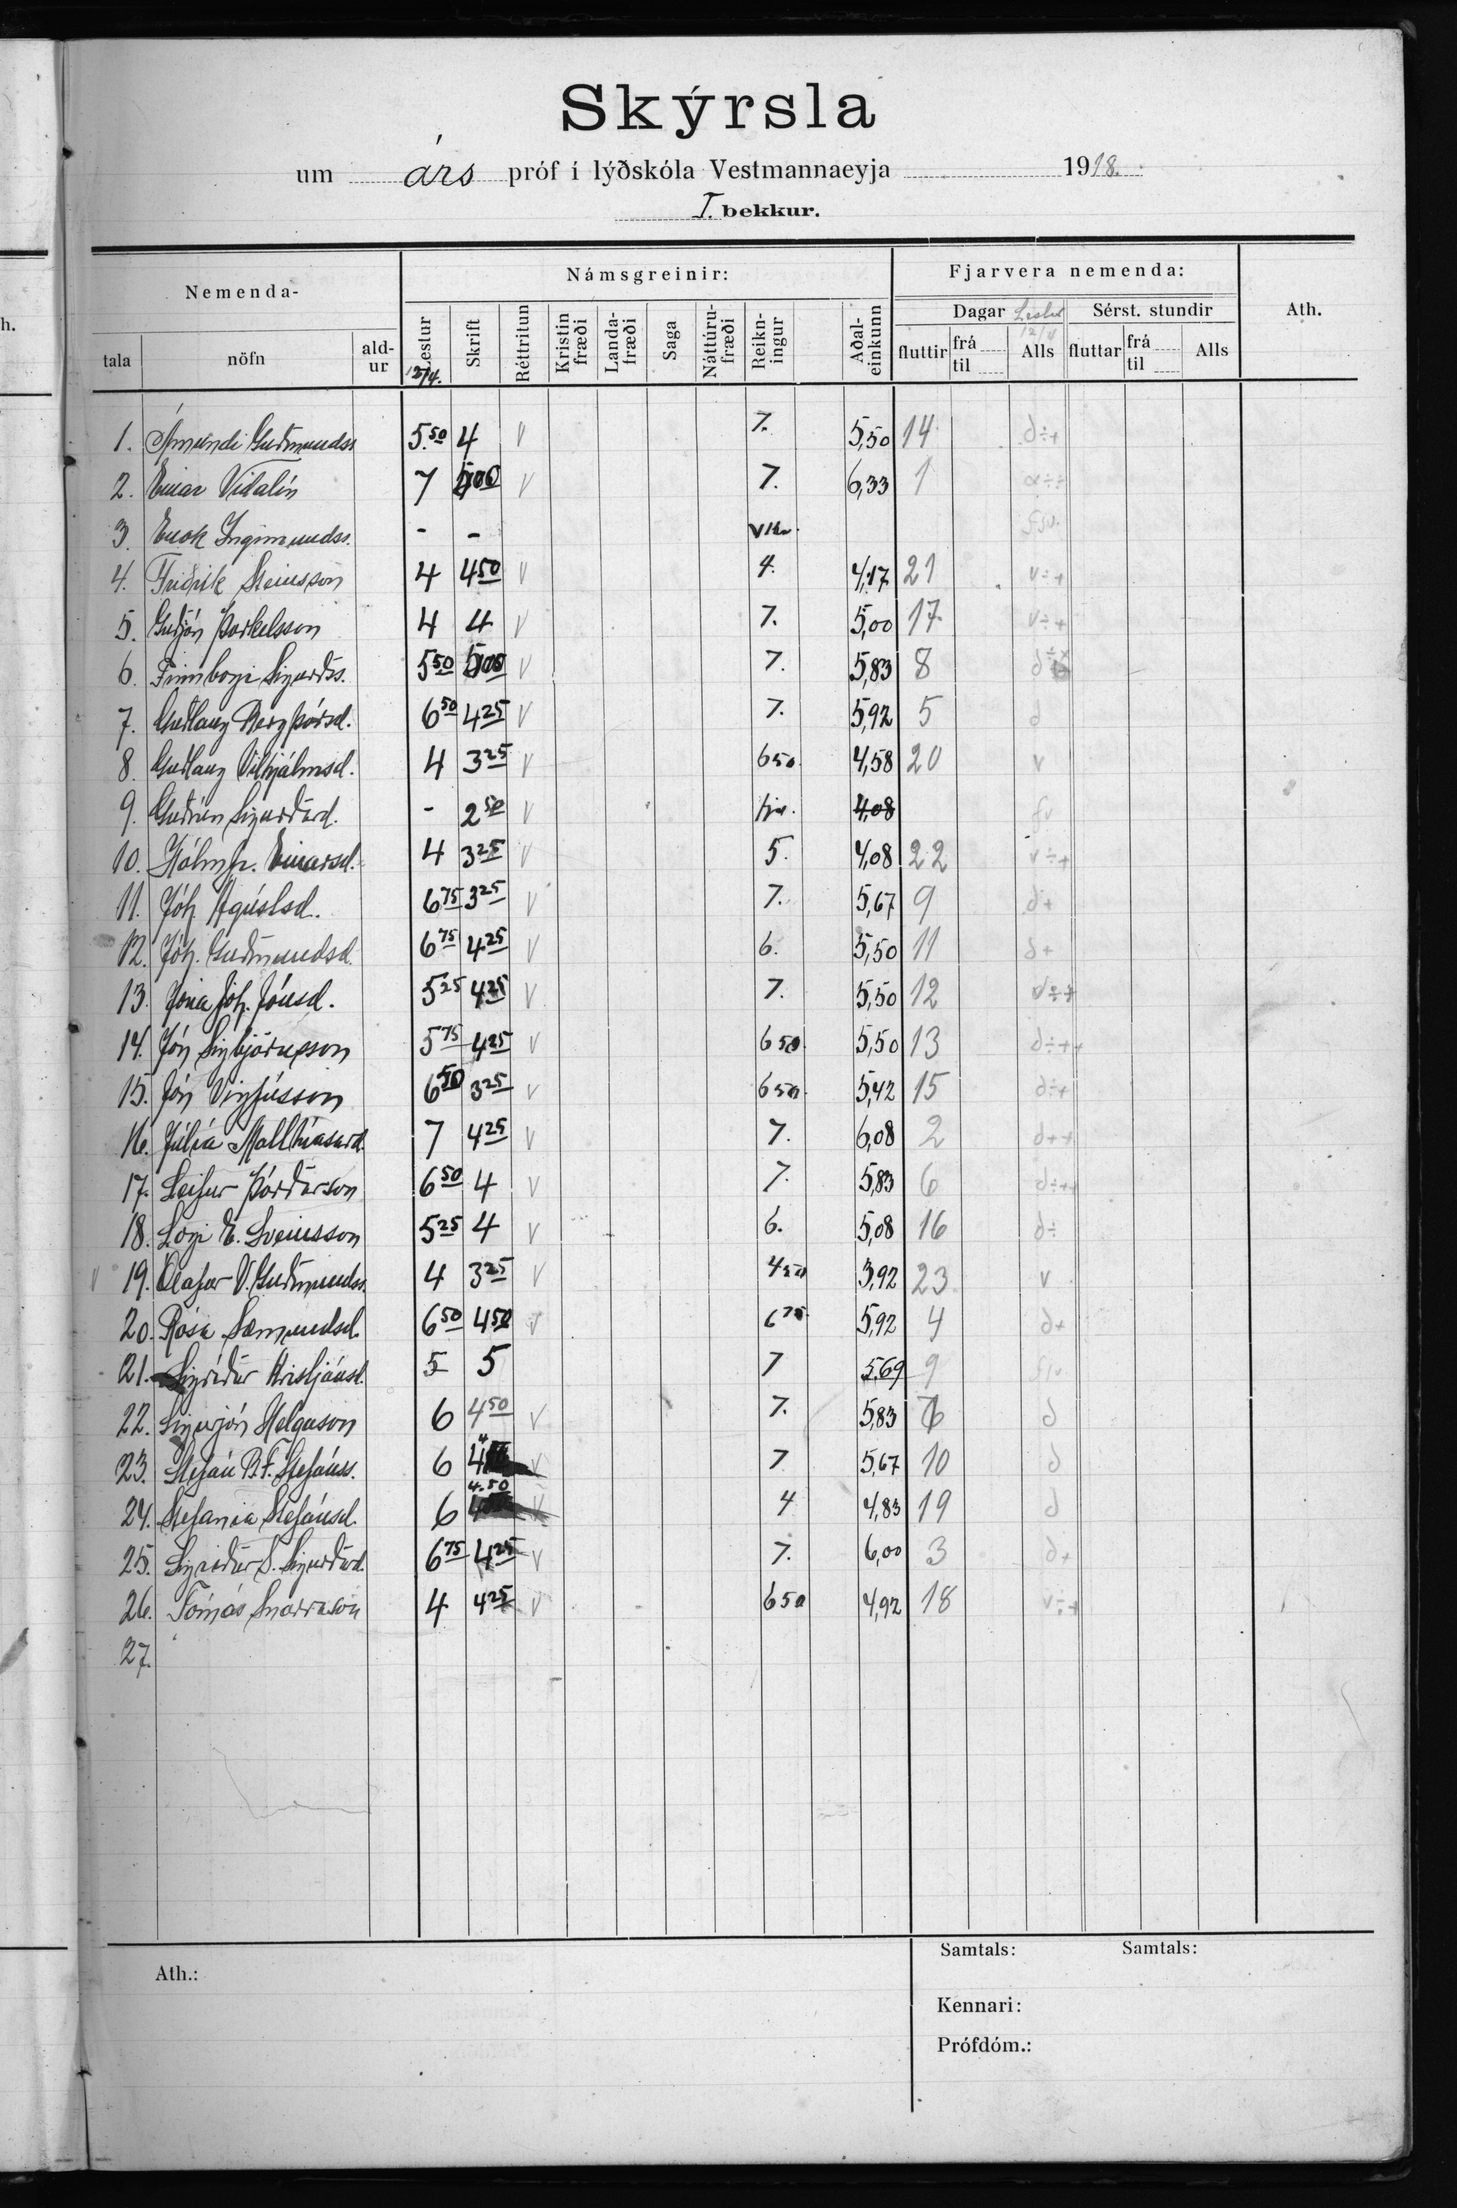 h.
Skýrsla
um árs próf í lýðskóla Vestmannaeyja 1918.
I. bekkur.
Nemenda- Námsgreinir: Fjarvera nemenda: Ath.
Dagar Lestur 12/4 Sérst. stundir
tala nöfn ald-ur Lestur 12/4. Skrift Réttritun Kristin fræði Landa-fræði Saga Náttúru-fræði Reikn-ingur Aðal-einkunn fluttir frá til Alls fluttar frá til Alls
1. Ámundi Guðmundss 5.50 4 v 7. 5,50 14 d÷+
2. Einar Vidalín 7 500 v 7. 6,33 1
3. Enok Ingimundss. - -
4. Friðrik Steinsson 4 450 v 4. 4,17 21 v÷+
5. Guðjón Þorkelsson 4 4 v 7. 5,00 17 v÷+
6. Finnbogi Sigurðss. 550 500 v 7. 5,83 8
7. Guðlaug Bergþórsd. 650 425 v 7. 5,92 5 d
8. Guðlaug Vilhjálmsd. 4 325 v 650. 4,58 20 v
9. Guðrún Sigurðard. - 250 v fjv. 4,08 fv
10. Hólmfr. Einarsd. 4 325 v 5. 4,08 22 v÷+
11. Jóh Ágústsd. 675 325 v 7. 5,67 9 d+
12. Jóh. Guðmundsd. 675 425 v 6. 5,50 11 d+
13. Jóna Jóh. Jónsd. 525 425 v 7. 5,50 12
14. Jón Sigbjörnsson 575 425 v 650. 5,50 13 d÷++
15. Jón Vigfússon 650 325 v 650. 5,42 15 d÷+
16. Júlía Matthíasard. 7 425 v 7. 6,08 2 d++
17. Leifur Þórðarson 650 4 v 7. 5,83 6 d÷++
18. Logi E. Sveinsson 525 4 v 6. 5,08 16 d÷
v 19. Ólafur V. Guðmundss. 4 325 v 450 3,92 23 v
20. Rósa Sæmundsd. 650 450 v 675. 5,92 4 d+
21. Sigríður Kristjánsd. 5 5 7 5,69 9 fjv
22. Sigurjón Helgason 6 450 v 7. 5,83 7 d
23. Stefán B.F. Stefánss. 6 4 v 7 5,67 10 d
24. Stefania Stefánsd. 6 4.50 v 4 4,83 19 d
25. Sigríður S. Sigurðard. 675 425 v 7. 6,00 3 d+
26. Tómás Snorrason 4 425 v 650 4,92 18 v÷+
27.
Ath.: Samtals: Samtals:
Kennari:
Prófdóm.: